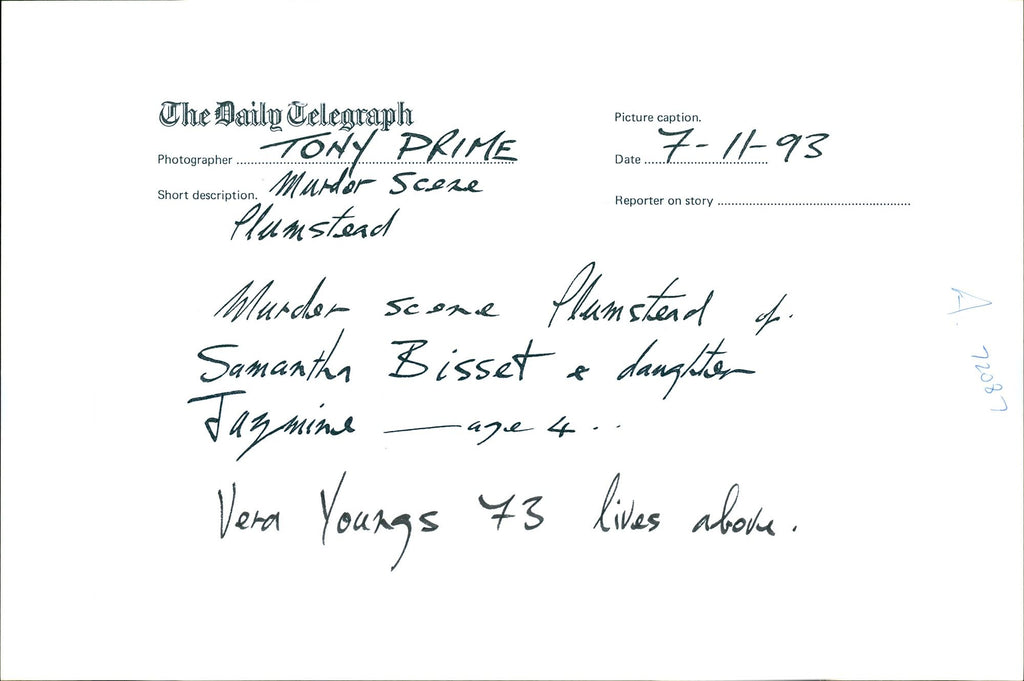 The Daily Telegraph
Picture caption.
Photographer TONY PRIME
Date 7-11-93
Short description. Murder Scene
Plumstead
Reporter on story
Murder scene Plumstead of.
Samantha Bisset & daughter
Jazmine — age 4 ..
Vera Youngs 73 lives above.
A.